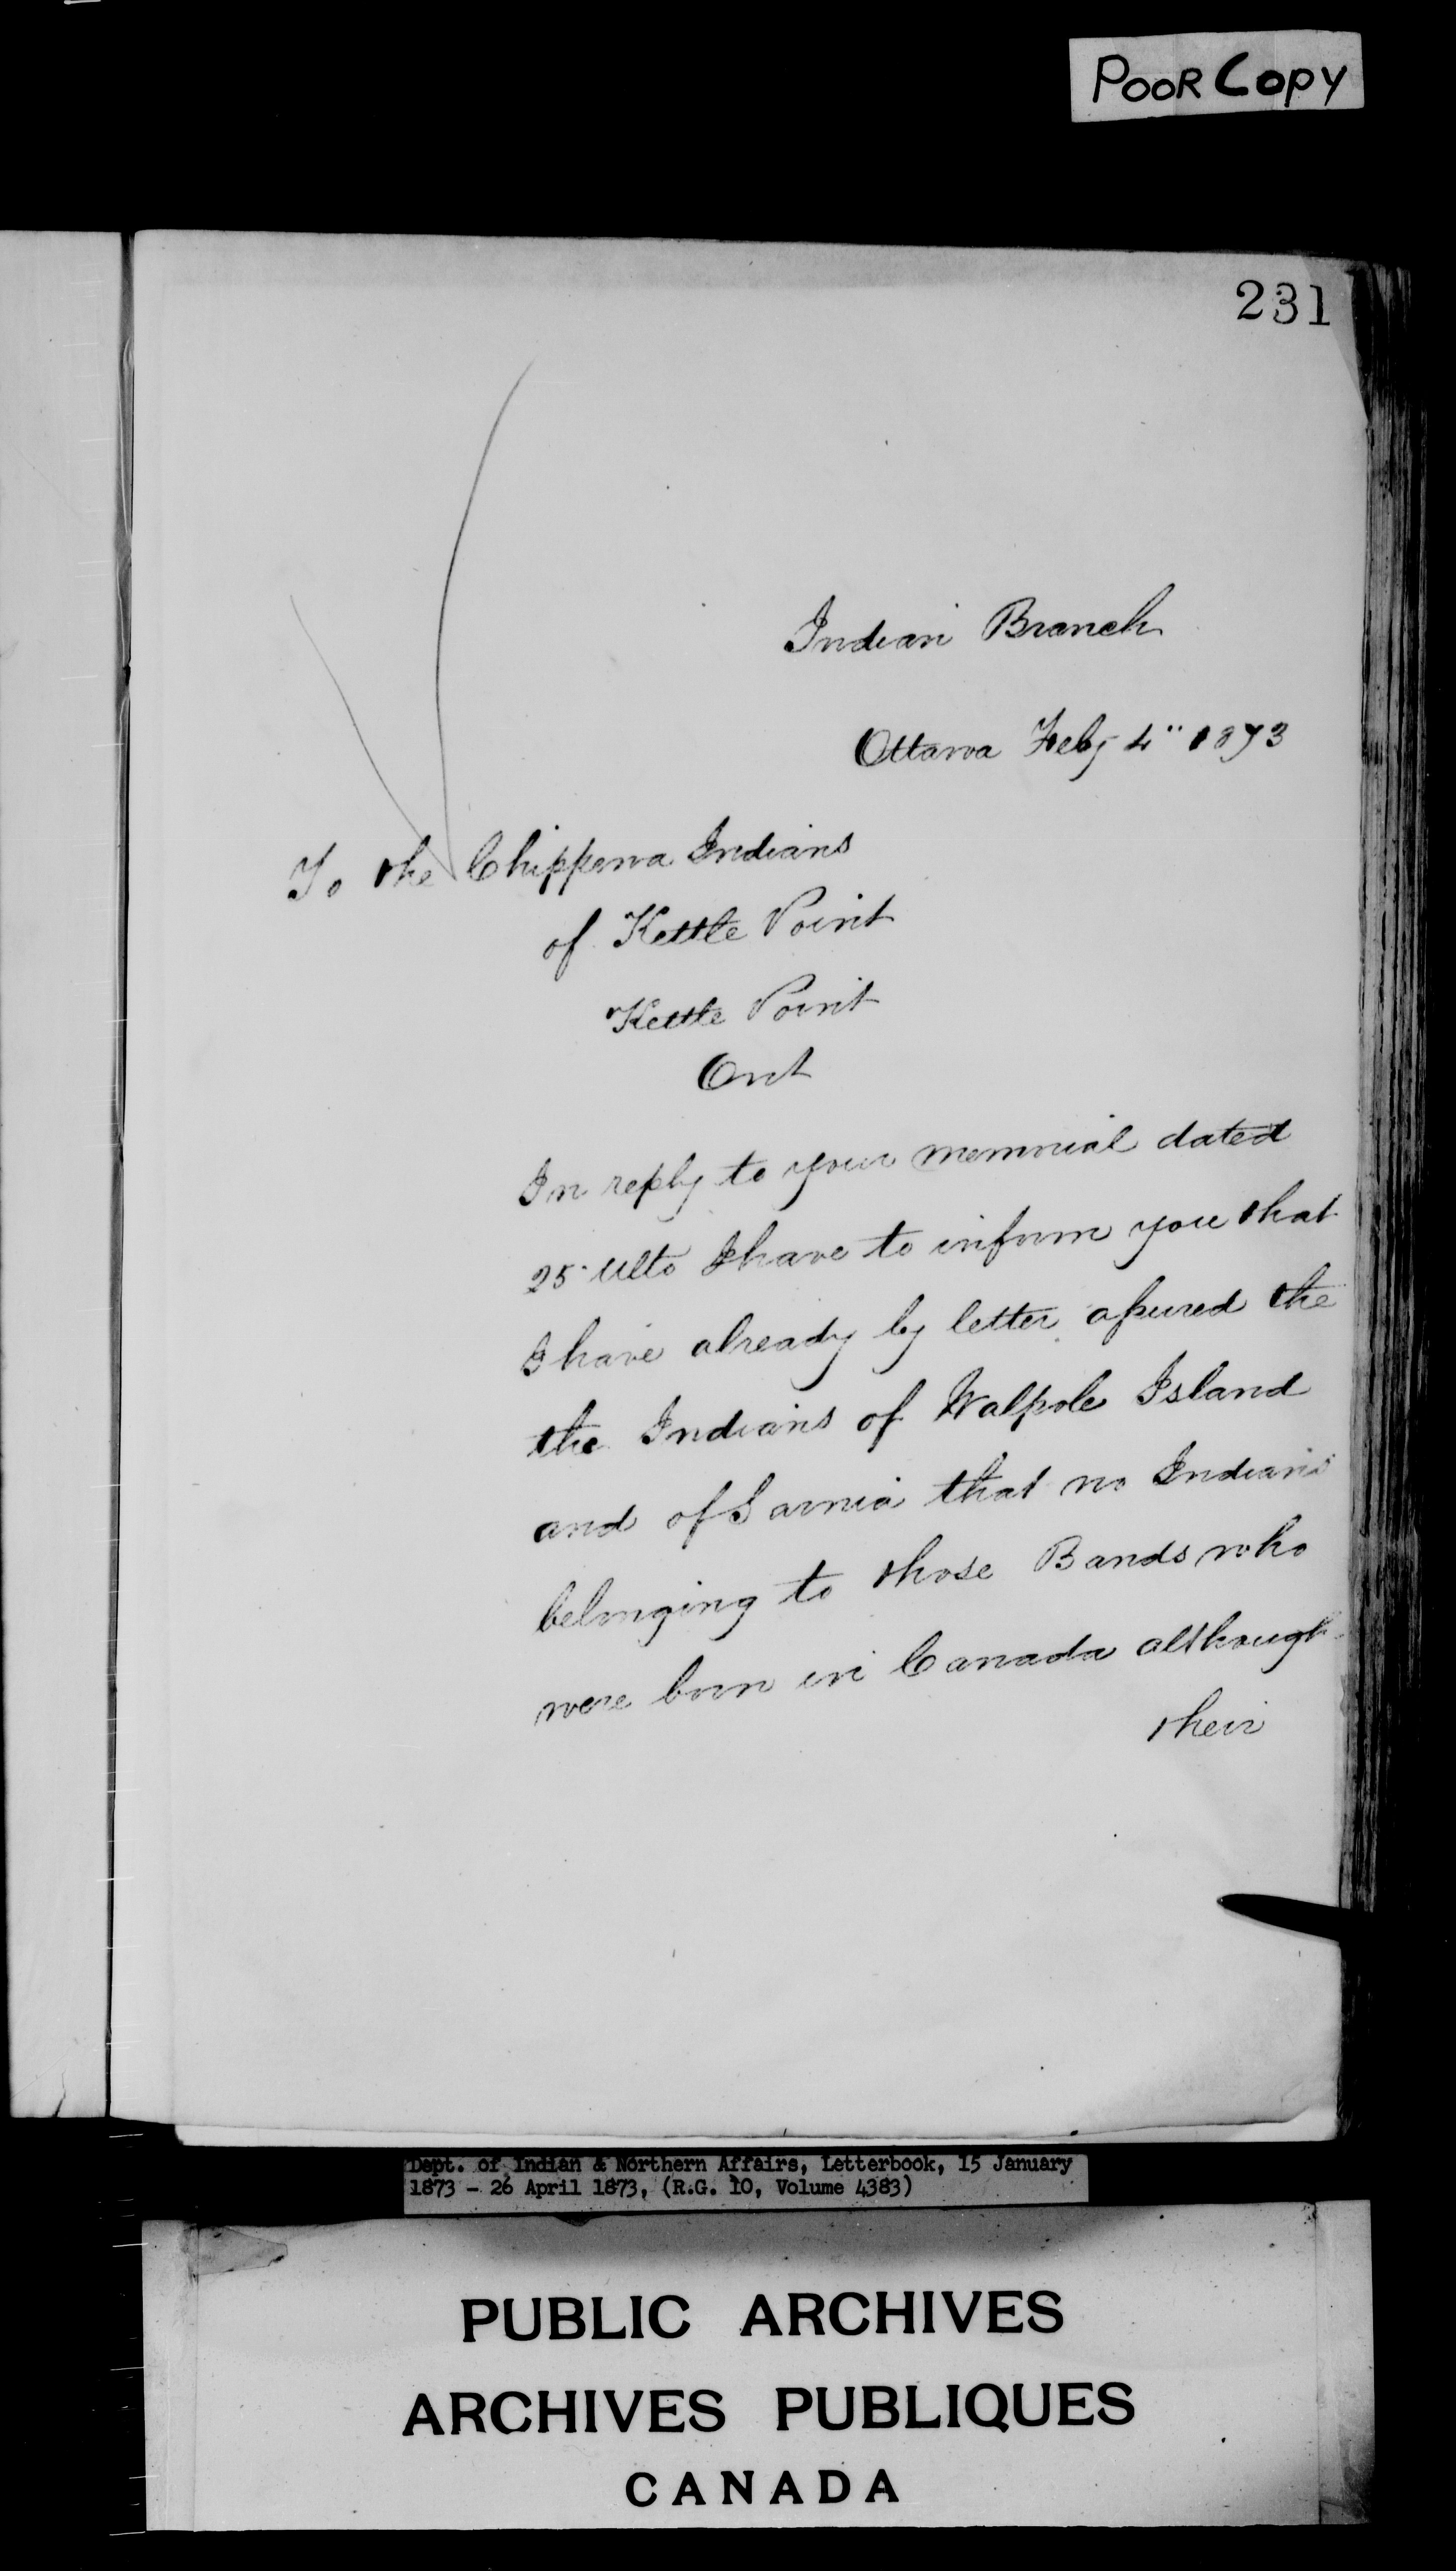 POOR COPY
231
Indian Branch
Ottawa Feby 4" 1873
To the Chippewa Indians
of Kettle Point
Kettle Point
Ont
In reply to your memorial dated
25 Ulto I have to inform you that
I have already by letter assured the
the Indians of Walpole Island
and of Sarnia that no Indians
belonging to those Bands who
were born in Canada although
their
Dept. of Indian & Northern Affairs, Letterbook, 15 January
1873 - 26 April 1873, (R.G. 10, Volume 4383)
PUBLIC ARCHIVES
ARCHIVES PUBLIQUES
CANADA